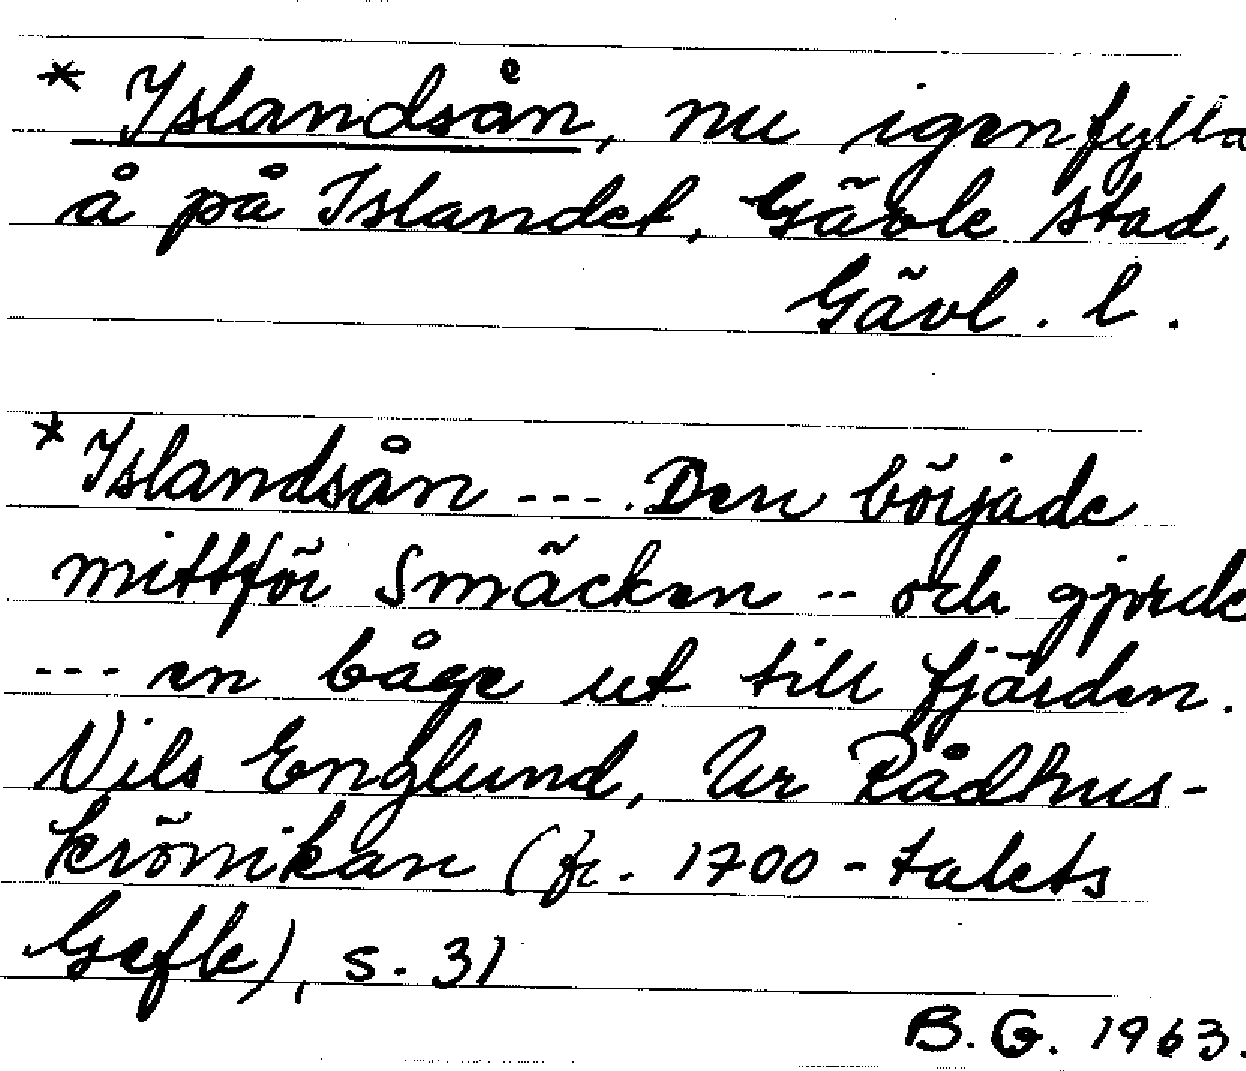 * Islandsån, nu igenfylld
å på Islandet, Gävle stad,
Gävl. l.
* Islandsån ---. Den började
mittför Smäcken -- och gjorde
--- en båge ut till fjärden.
Nils Englund, Ur Rådhus-
krönikan (fr. 1700-talets
Gefle), s. 31
B.G. 1963.